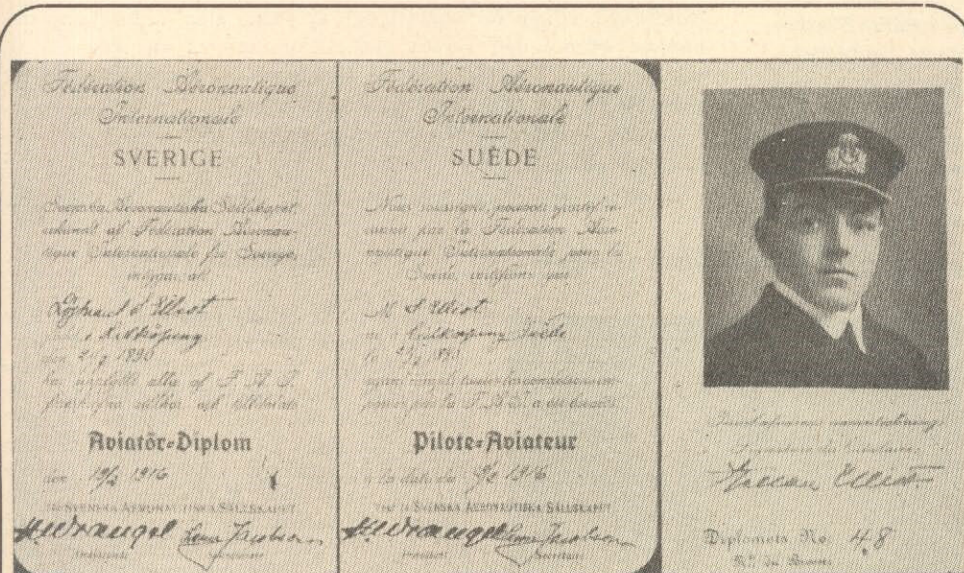 Fédération Aéronautique
Internationale
SVERIGE
Svenska Aeronautiska Sällskapet,
erkänet af Fédération Aéronau-
tique Internationale för Sverige,
intygar, att
Elliot
född i Lidköping
den 1890
har uppfyllt alla af F.A.I.
Aviatör-Diplom
den 19/2 1916
SVENSKA AERONAUTISKA SÄLLSKAPET
H. Wrangel Jacobson
Fédération Aéronautique
Internationale
SUÈDE
Nous soussignés, pouvoir sportif re-
connu par la Fédération Aéro-
nautique Internationale pour la
Suède, certifions que
M. Elliot
né à Lidköping Suède
le
ayant rempli toutes les conditions im-
posées par la F.A.I. a été breveté
Pilote-Aviateur
à la date du 1916
SVENSKA AERONAUTISKA SÄLLSKAPET
H. Wrangel Jacobson
Président Secrétaire
Signature du titulaire
Elliot
Diplomets No. 48
No. du Brevet